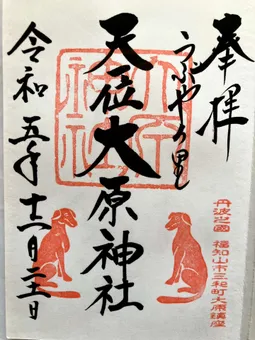 奉拝
うぶやの里
天一位大原神社
令和五年十二月
丹波之國 福知山市三和町大原鎮座